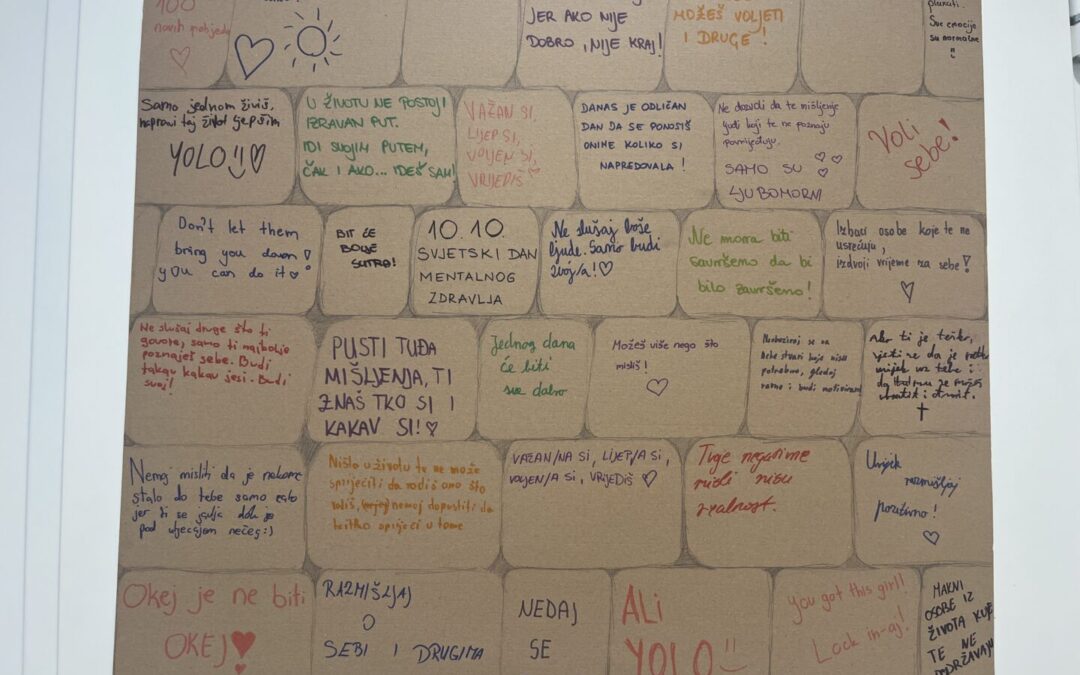 100
novih pobjeda
JER AKO NIJE
DOBRO, NIJE KRAJ!
MOŽEŠ VOLJETI
I DRUGE!
plakati.
Sve emocije
su normalne
:)
Samo jednom živiš,
napravi taj život ljepšim
YOLO
U ŽIVOTU NE POSTOJI
IZRAVAN PUT.
IDI SVOJIM PUTEM,
ČAK I AKO... IDEŠ SAM!
VAŽAN SI,
LIJEP SI,
VOLJEN SI,
VRIJEDIŠ
DANAS JE ODLIČAN
DAN DA SE PONOSIŠ
ONIME KOLIKO SI
NAPREDOVALA!
Ne dozvoli da te mišljenje
ljudi koji te ne poznaju
povrijeđuju.
SAMO SU
LJUBOMORNI
Voli
sebe!
Don't let them
bring you down!
you can do it
BIT ĆE
BOLJE
SUTRA!
10.10.
SVJETSKI DAN
MENTALNOG
ZDRAVLJA
Ne slušaj loše
ljude. Samo budi
svoj/a!
Ne mora biti
savršeno da bi
bilo završeno!
Izbaci osobe koje te ne
usrećuju,
izdvoji vrijeme za sebe!
Ne slušaj druge što ti
govore, samo ti najbolje
poznaješ sebe. Budi
takav kakav jesi. Budi
svoj!
PUSTI TUĐA
MIŠLJENJA, TI
ZNAŠ TKO SI I
KAKAV SI!
Jednog dana
će biti
sve dobro
Možeš više nego što
misliš!
Neobaziraj se na
neke stvari koje nisu
potrebne, gledaj
ravno i budi motiviran
Ako ti je teško,
sjeti se da je
uvijek uz tebe i
da
Nemoj misliti da je nekome
stalo do tebe samo zato
jer ti se javlja dok je
pod utjecajem nečeg :)
Ništa u životu te ne može
spriječiti da radiš ono što
voliš, nemoj dopustiti da
te itko spriječi u tome
VAŽAN/NA SI, LIJEP/A SI,
VOLJEN/A SI, VRIJEDIŠ
Tvoje negativne
misli nisu
realnost.
Uvijek
razmišljaj
pozitivno!
Okej je ne biti
OKEJ
RAZMIŠLJAJ
O
SEBI I DRUGIMA
NEDAJ
SE
ALI
YOLO
you got this girl!!
Lock in-aj!
MAKNI
OSOBE IZ
ŽIVOTA KOJE
TE NE
PODRŽAVAJU